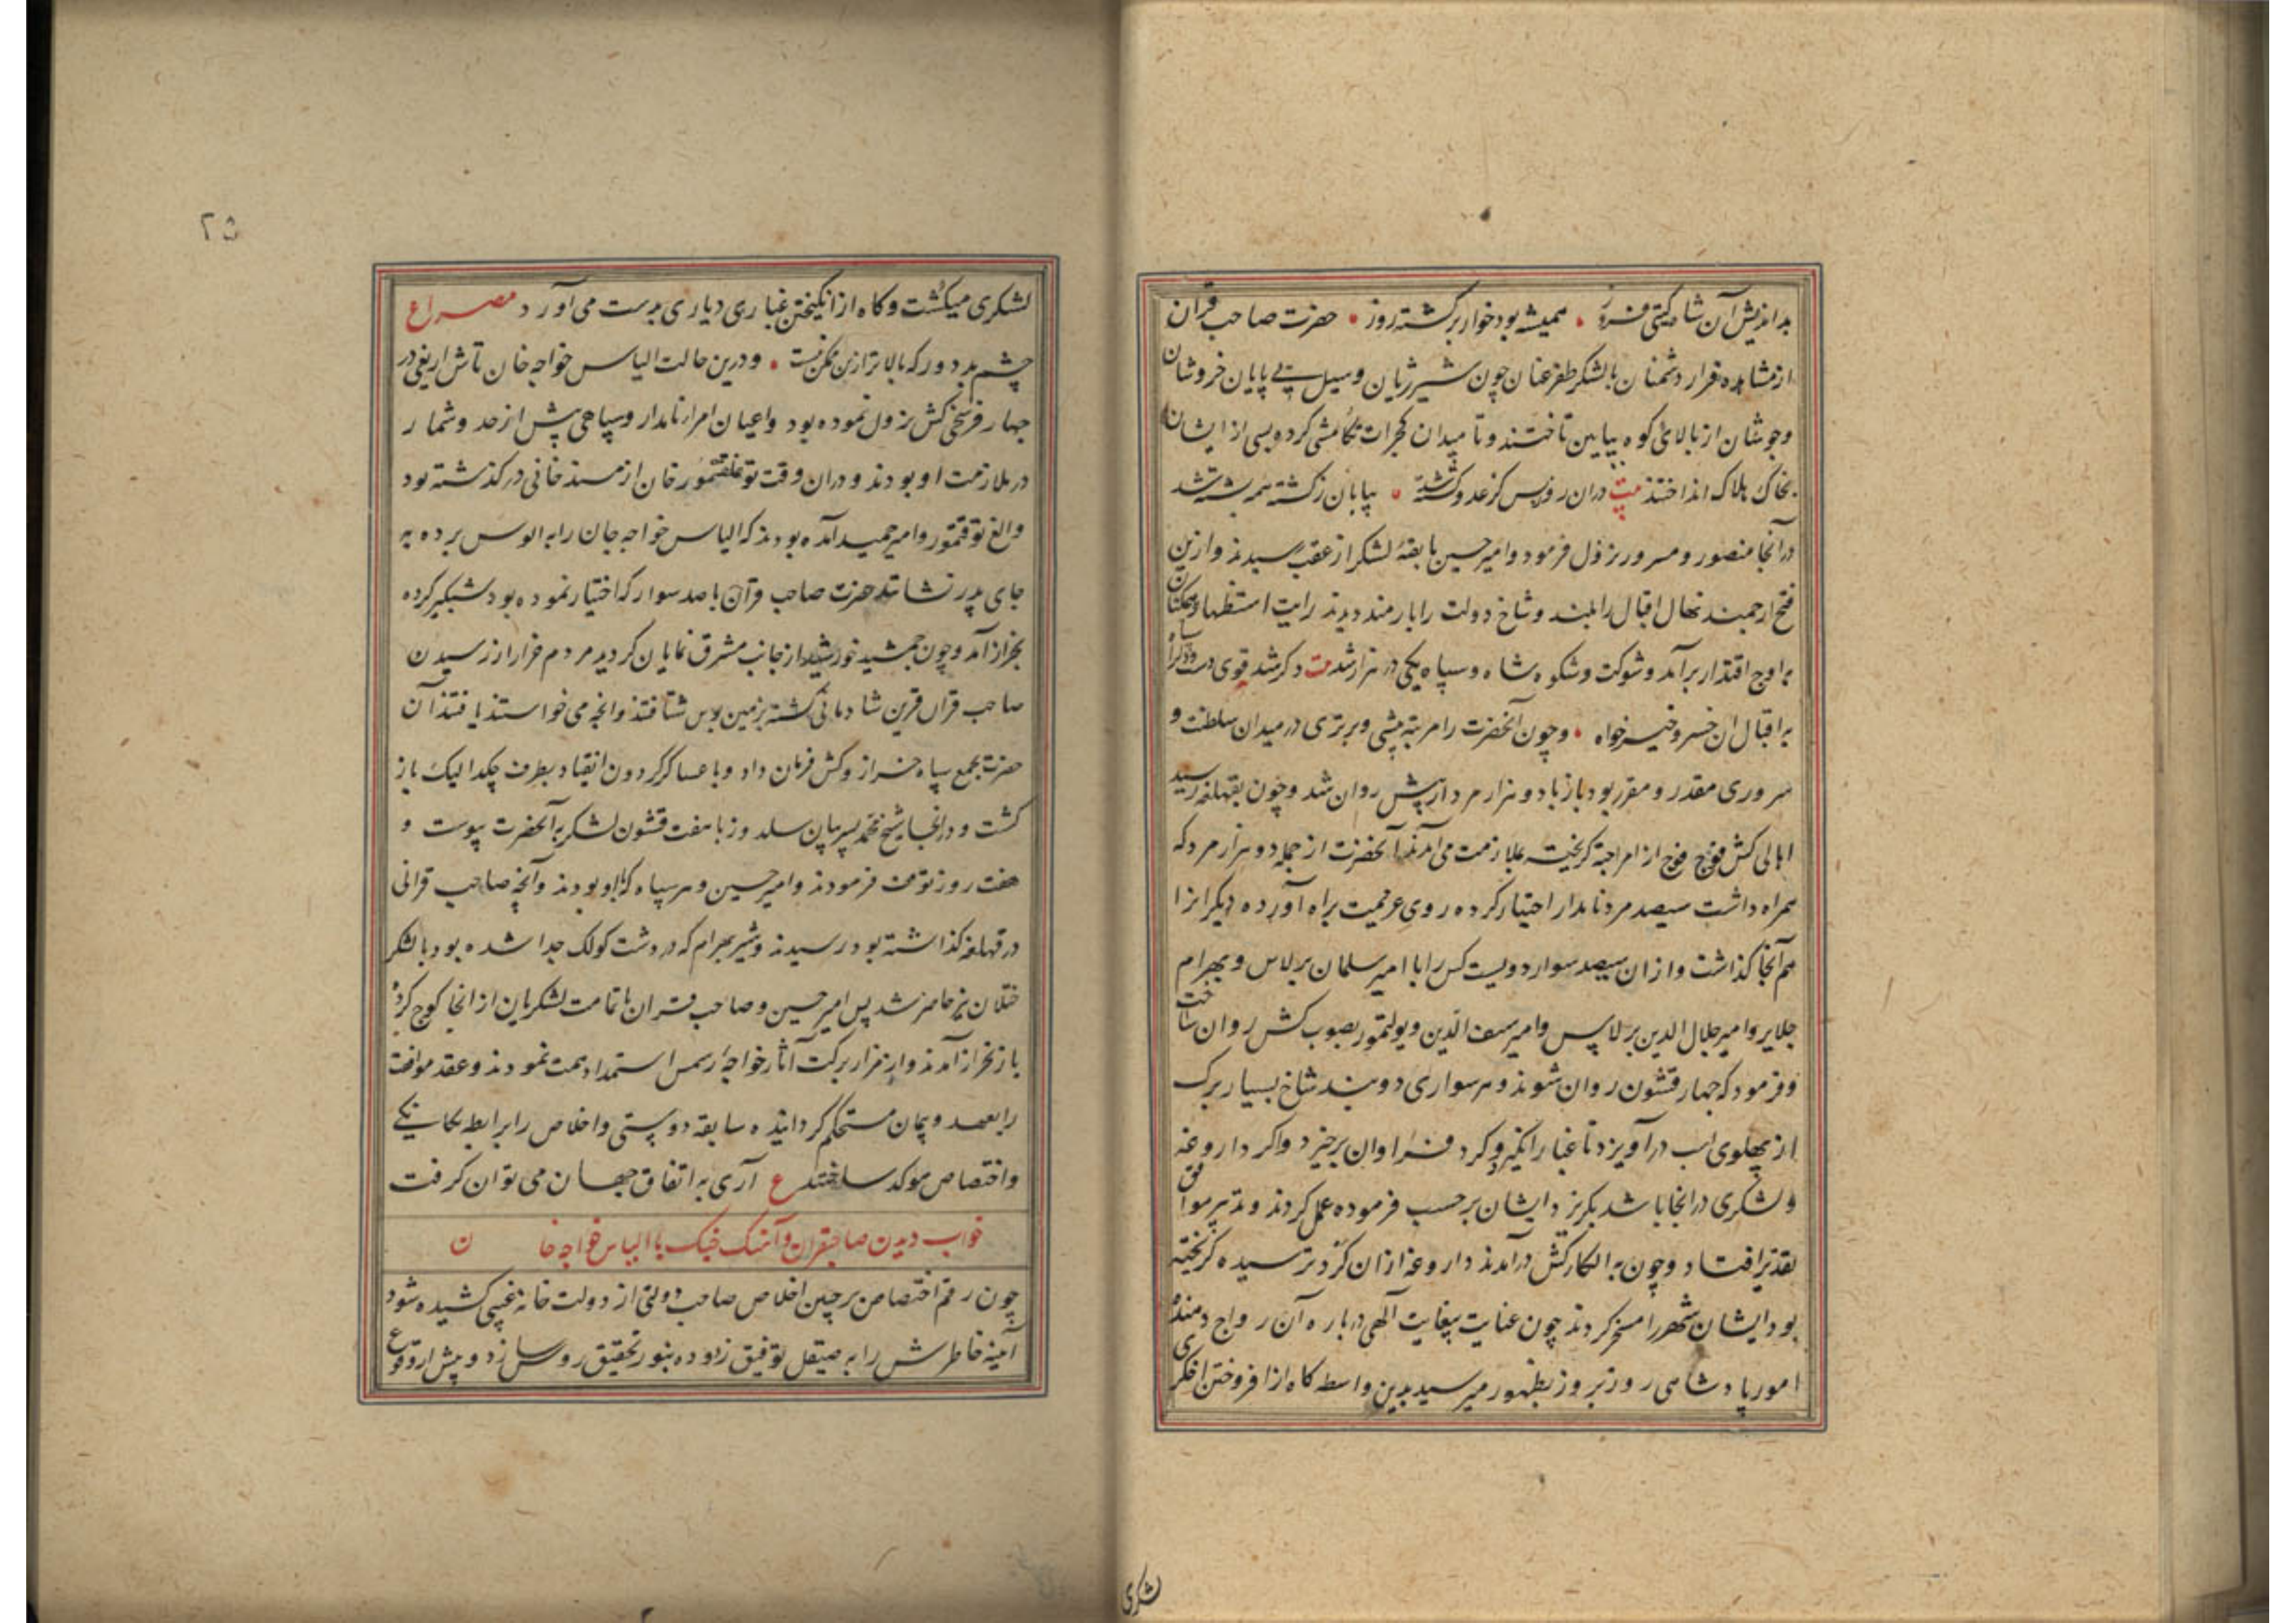 بداندیش آن شاه گیتی فروز • همیشه بود خوار برگشته روز • حضرت صاحب قران
از مشاهده فرار دشمنان بالشکر ظفر عنان چون شیر ژیان و سیل بی پایان خروشان
وجوشان از بالای کوه بپایین تاختند و تا میدان کجرات تکامشی کرده بسی از ایشان
بخاک هلاک انداختند بیت دران روز بس کز عدو کشته شد • بیابان ز کشته همه پشته شد
در آنجا منصور و مسرور نزول فرمود و امیر حسین با بقیهٔ لشکر از عقب رسیدند و ازین
فتح ارجمند نهال اقبال را بلند و شاخ دولت را بارمند دیدند رایت استظهار همکنان
بر اوج اقتدار برآمد و شوکت و شکوه شاه و سپاه یکی در هزار شد بیت دگر شد قوی دست
به اقبال ان خسرو خیر خواه • و چون آنحضرت را مرتبه پیشی و برتری در میدان سلطنت و
سروری مقدر و مقرر بود باز با دو هزار مرد از پیش روان شد و چون بقهلغه رسید
اهالی کش فوج فوج از امرا جته کریخته بملازمت می آمدند آنحضرت از جمله دو هزار مرد که
همراه داشت سیصد مرد نامدار اختیار کرده روی عزیمت براه آورده دیکرانرا
هم آنجا کذاشت و از ان سیصد سوار دویست کس را با امیر سلمان برلاس و بهرام
جلایر و امیر جلال الدین برلاس و امیر سیف الدین و یولتمور بصوب کش روان ساخت
و فرمود که چهار قشون روان شوند و هر سواری دو بند شاخ بسیار برک
از پهلوی اسب در آویزد تا غبار انکیزد و کرد فراوان برخیزد و اکر داروغه
و لشکری در انجا باشد بکریزد ایشان برحسب فرموده عمل کردند و تدبیر موافق
تقدیر افتاد و چون به الکار کش در آمدند داروغه از ان کرد ترسیده کریخته
بود ایشان شهر را مسخر کردند چون عنایت بیغایت آلهی درباره آن رواج دهنده
امور پادشاهی روز بروز بظهور میرسید بدین واسطه کاه از افروختن اخکری
لشکری
۲۵
لشکری میکشت و کاه از انکیختن غباری دیاری بدست می آورد مصراع
چشم بد دور که بالاتر ازین ممکن نیست • و درین حالت الیاس خواجه خان تاش اریغی در
چهار فرسخی کش نزول نموده بود و اعیان امراء نامدار و سپاهی بیش از حد و شمار
در ملازمت او بودند و دران وقت توغلقتمور خان از مسند خانی درکذشته بود
و الغ توقتمور و امیر حمید آمده بودند که الیاس خواجه جان را به الوس برده به
جای پدر نشانند حضرت صاحب قران با صد سوار که اختیار نموده بود شبکیر کرده
بخزار آمد و چون جمشید خورشید از جانب مشرق نمایان کردید مردم خزار از رسیدن
صاحب قران قرین شادمانی کشته بزمین بوس شتافتند و انچه می خواستند یافتند آن
حضرت بجمع سپاه خزار و کش فرمان داد و با عساکر کردون انقیاد بطرف چکدالیک باز
کشت و در انجا شیخ محمد پسر بیان سلدوز با هفت قشون لشکر به آنحضرت پیوست و
هفت روز توقف فرمودند و امیر حسین و هر سپاه که با او بودند و آنچه صاحب قرانی
در قهلغه کذاشته بود رسیدند و شیر بهرام که در دشت کولک جدا شده بود با لشکر
ختلان نیز حاضر شد پس امیر حسین و صاحب قران با تمامت لشکریان از انجا کوچ کرده
باز بخزار آمدند و از مزار برکت آثار خواجه رسمس استمداد همت نمودند و عقد موافقت
را بعهد و پیمان مستحکم کردانیده سابقه دوستی و اخلاص را برابطه یکانیکی
و اختصاص موکد ساختند ع آری به اتفاق جهان می توان کرفت
خواب دیدن صاحبقران و آهنک جنک با الیاس خواجه خان
چون رقم اختصاص بر جبین اخلاص صاحب دولتی از دولت خانهٔ غیبی کشیده شود
آیینه خاطرش را به صیقل توفیق زدوده بنور تحقیق روشن سازد و پیش از وقوع